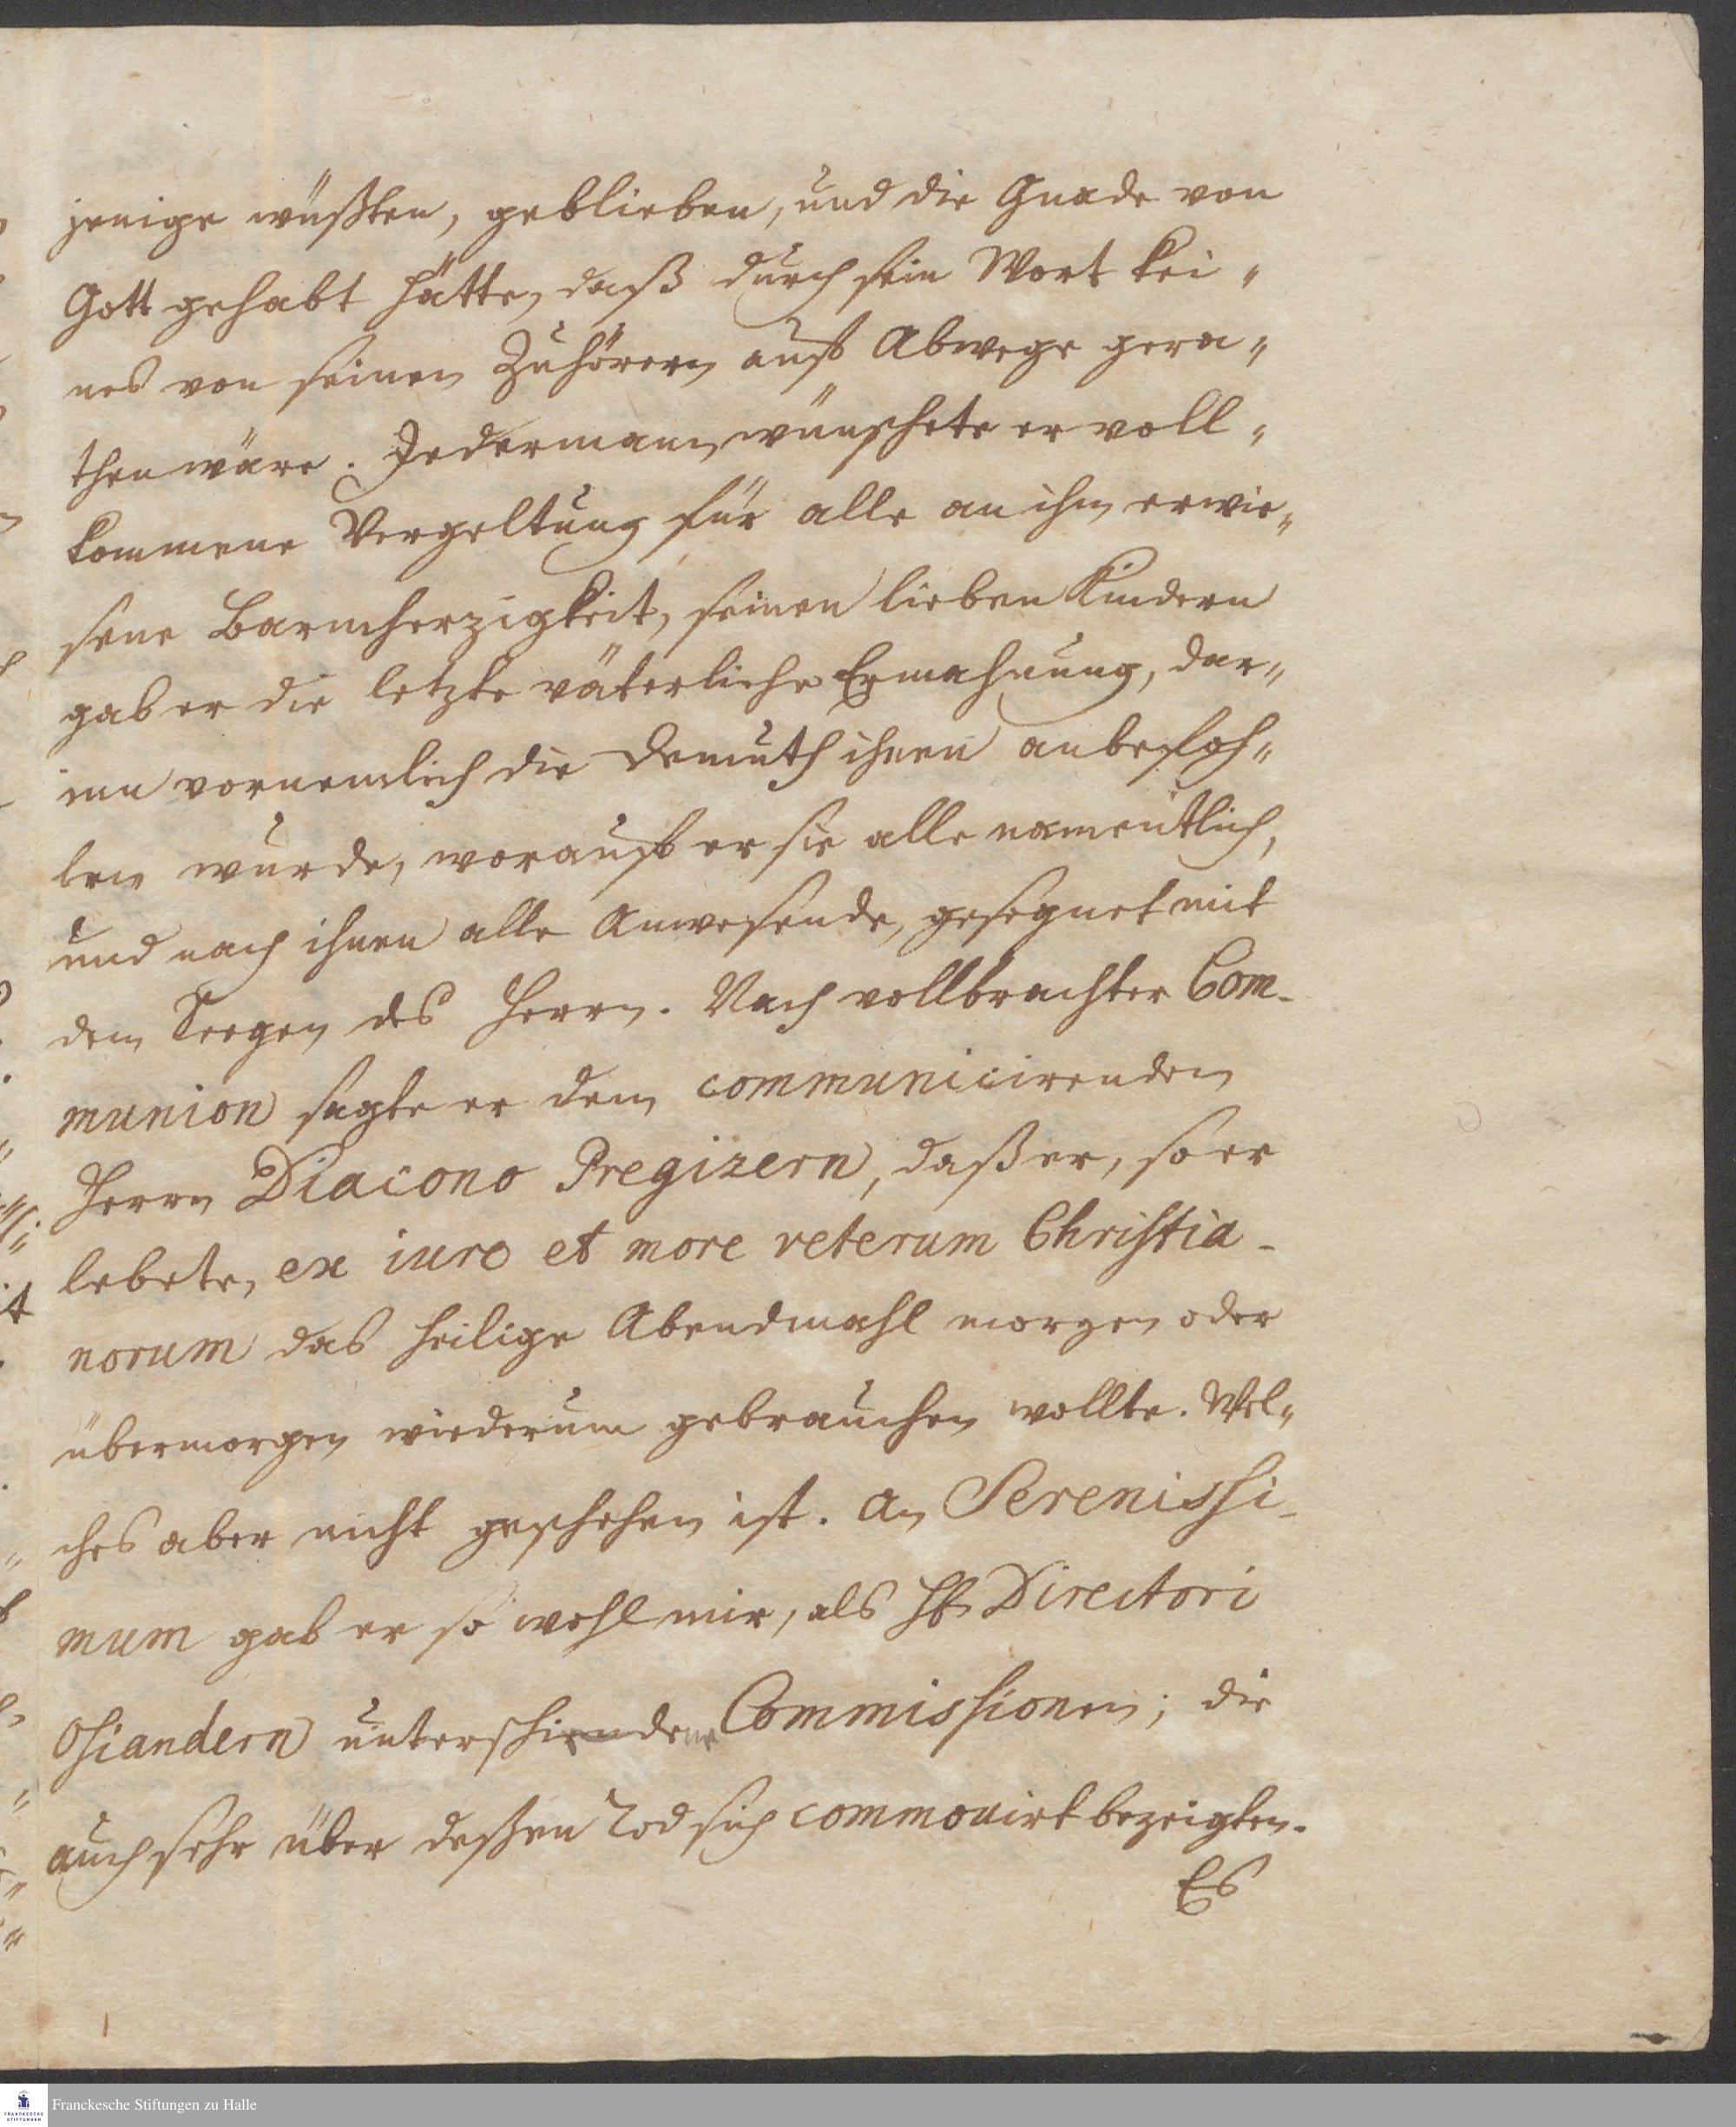 jenige wüßten, geblieben, und die Gnade von
Gott gehabt hätte, daß durch sein Wort kei„
nes von seinen Zuhörern auf Abwege gera„
then wäre. Jedermann wünschete er voll„
kommene Vergeltung für alle an ihm erwie„
sene Barmherzigkeit, seinen lieben Kindern
gab er die letzte väterliche Ermahnung, dar„
inn vornemlich die Demuth ihnen anbefoh„
len wurde, worauf er sie alle namentlich,
und nach ihnen alle Anwesende, gesegnet mit
dem Seegen des Herrn. Nach vollbrachter Com-
munion sagte er dem communicirenden
Herrn Diacono Pregizern, daß er, so er
lebete, ex iure et more veterum Christia-
norum das heilige Abendmahl morgen oder
übermorgen wiederum gebrauchen wollte. Wel„
ches aber nicht geschehen ist. An Serenissi-
mum gab er so wohl mir, als H. Directori
Osiandern unterschiedene Commissionen; die
auch sehr über deßen Tod sich commovirt bezeigten.
Es
Franckesche Stiftungen zu Halle